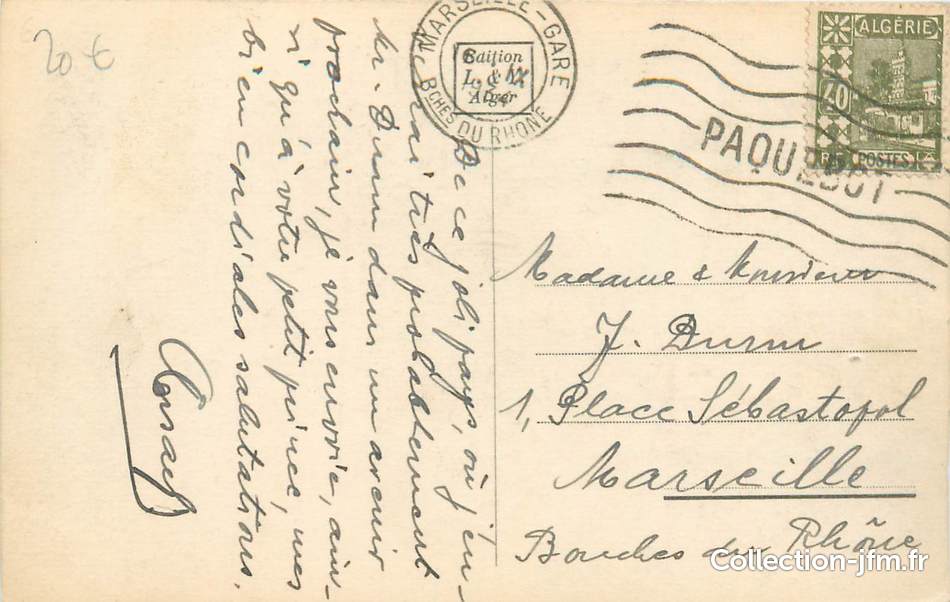 20 €
MARSEILLE-GARE
Bches DU RHONE
Edition
L. & Y.
Alger
ALGÉRIE
40
POSTES
PAQUEBOT
De ce joli pays, où j'en-
verrai très probablement
Mr. Durum dans un avenir
prochain, je vous envoie, ain-
si qu'à votre petit prince, mes
bien cordiales salutations.
Madame & Monsieur
J. Durum
1, Place Sébastopol
Marseille
Bouches du Rhône
Collection-jfm.fr